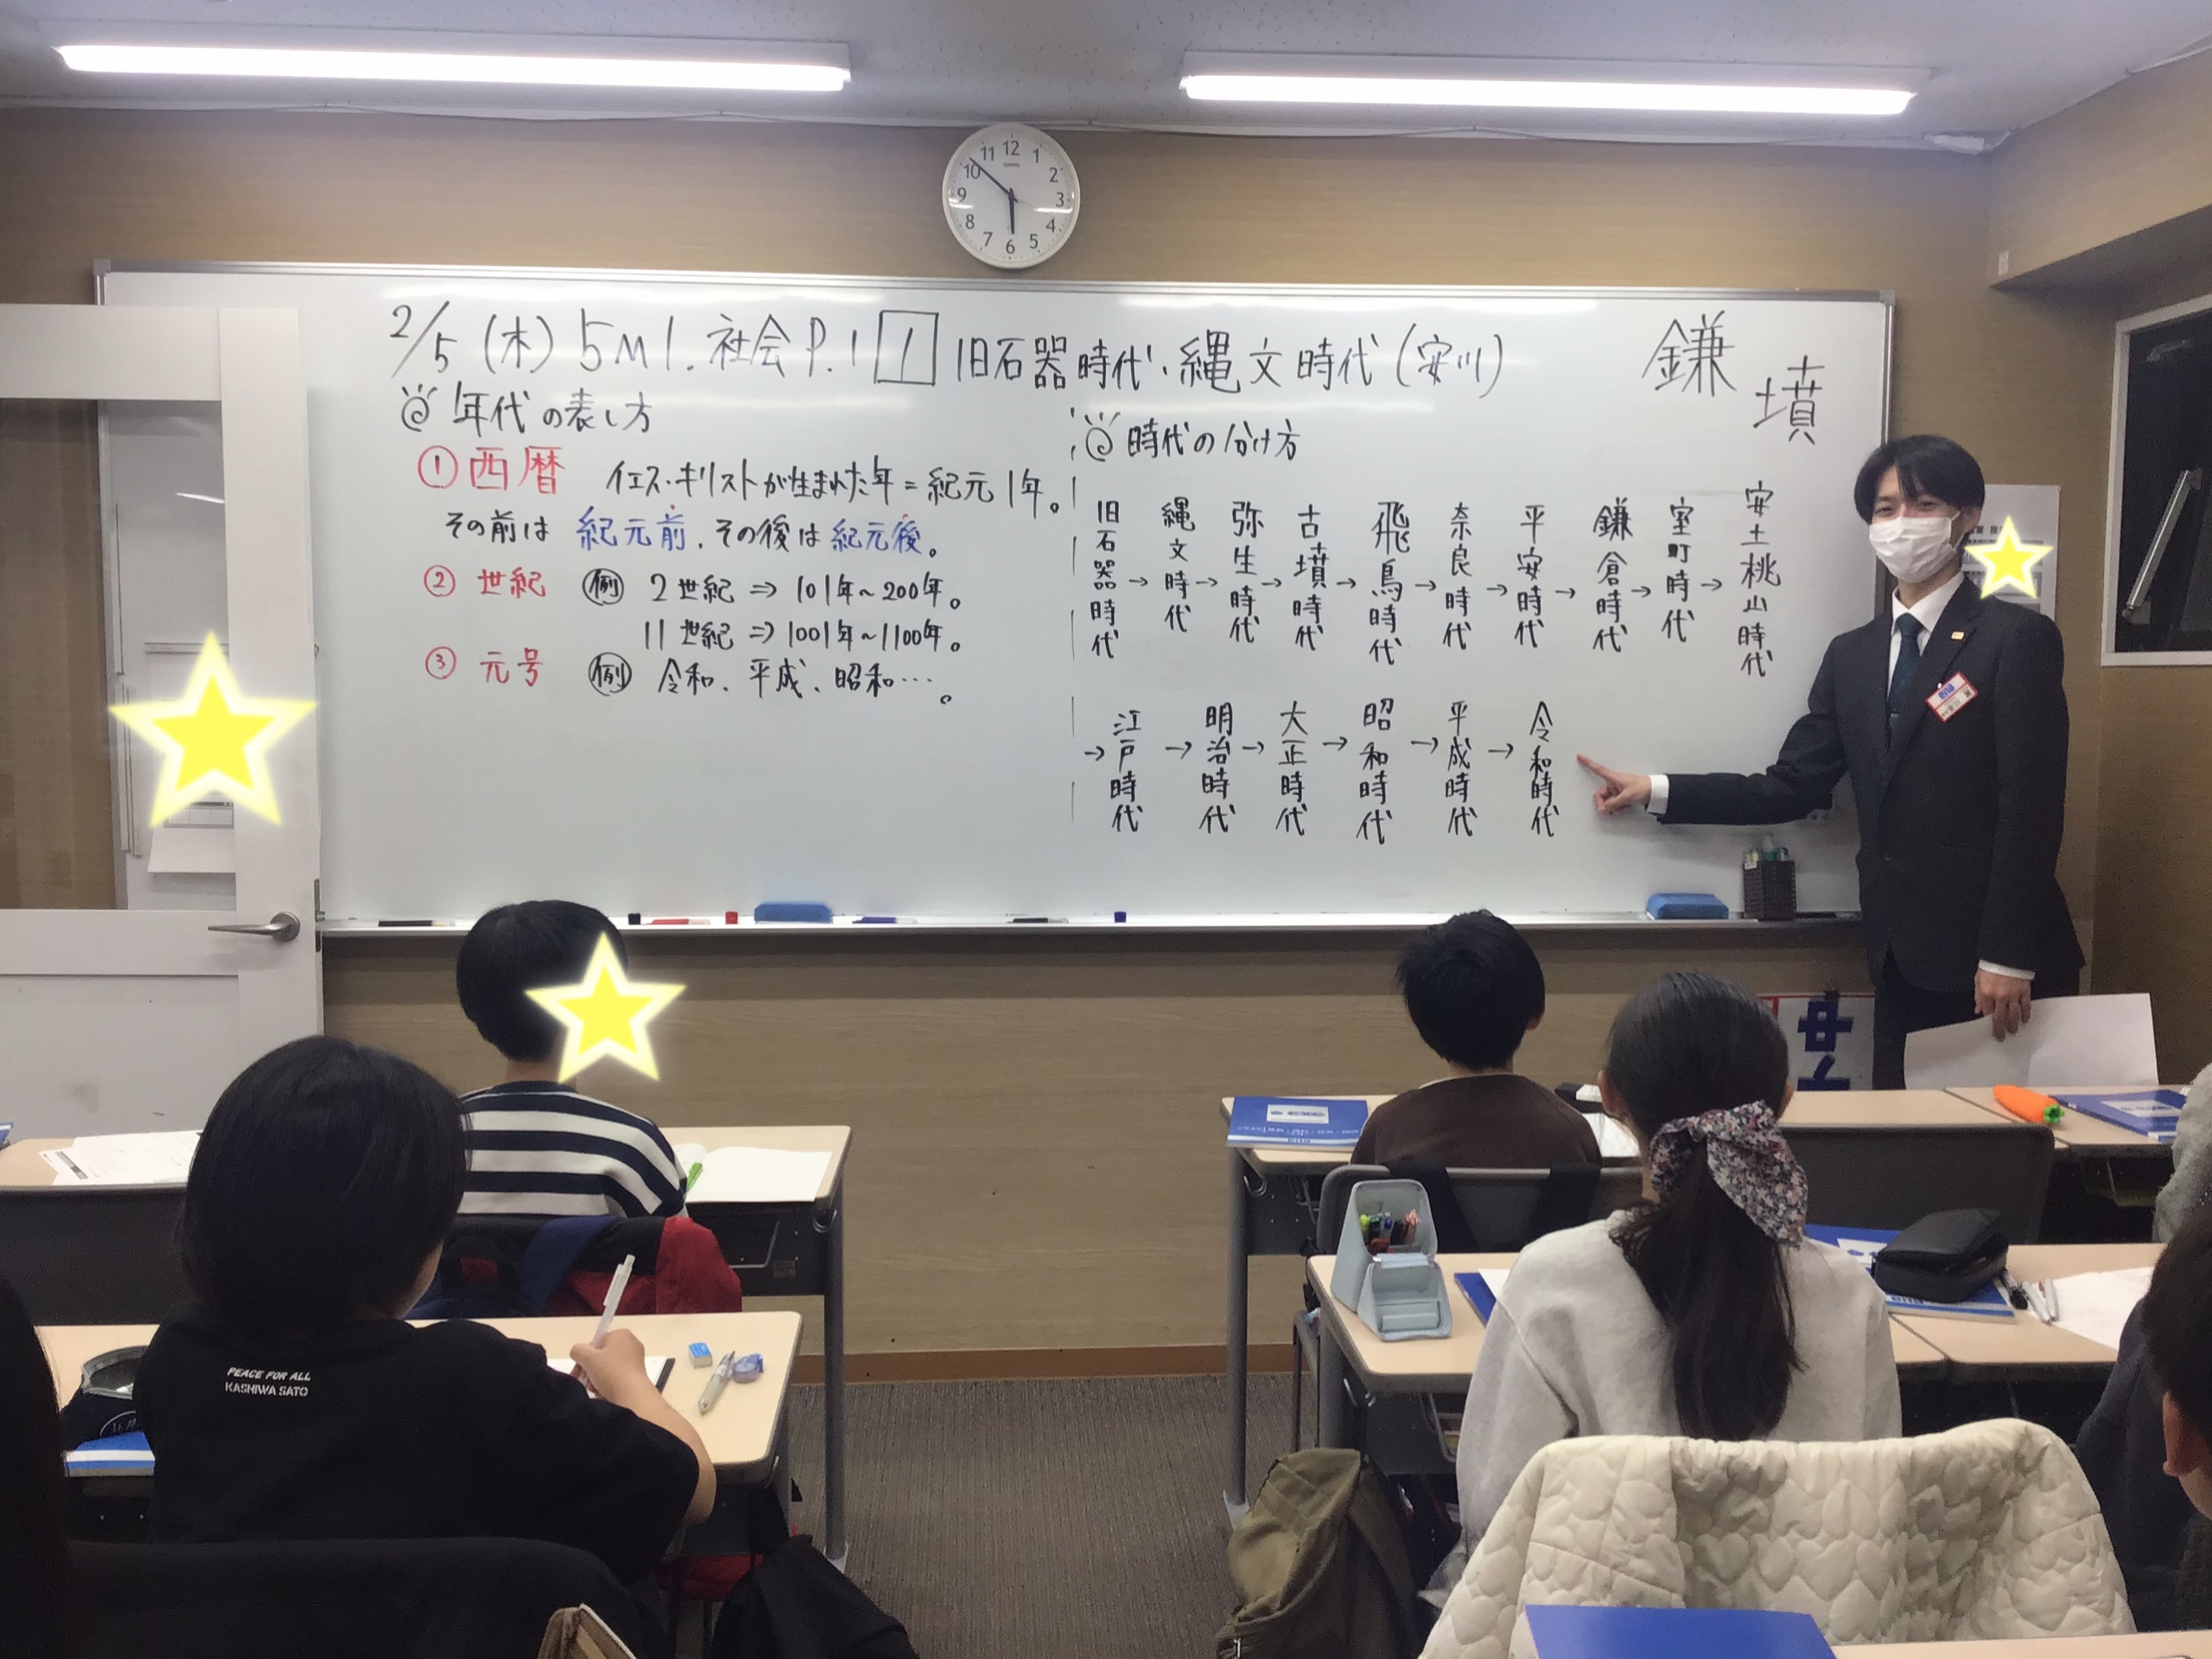 2/5 (木) 5M1. 社会 P.1 1 旧石器時代・縄文時代 (安川)
鎌
墳
年代の表し方
①西暦 イエス・キリストが生まれた年=紀元1年。
その前は 紀元前、その後は紀元後。
② 世紀 例 2世紀 ⇒ 101年~200年。
11世紀 ⇒ 1001年~1100年。
③ 元号 例 令和、平成、昭和…。
時代の分け方
旧石器時代→縄文時代→弥生時代→古墳時代→飛鳥時代→奈良時代→平安時代→鎌倉時代→室町時代→安土桃山時代
→江戸時代→明治時代→大正時代→昭和時代→平成時代→令和時代
12
1
2
3
4
5
6
7
8
9
10
11
PEACE FOR ALL
KASHIWA SATO